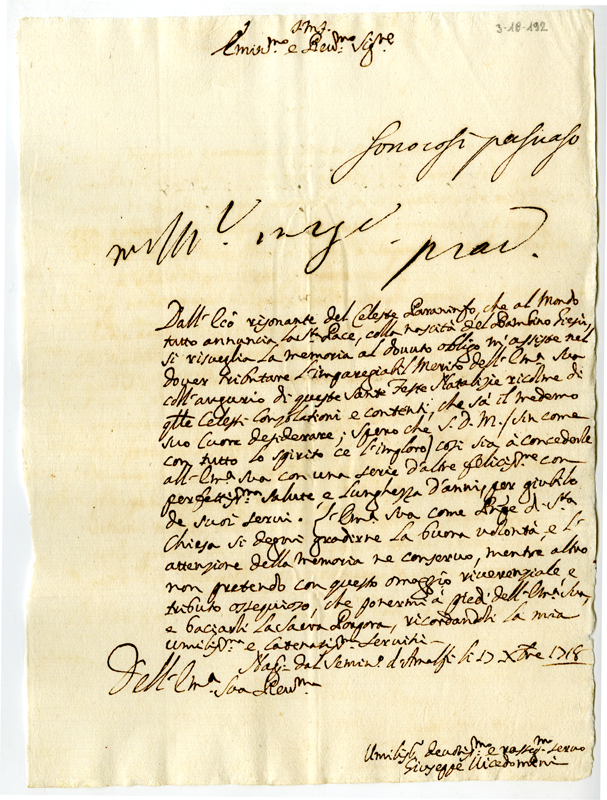 3-18-192
Emin.mo e Rev.mo Sig.re
Sono così
Dall'Eco risonante del Celeste Paraninfo, che al Mondo
tutto annuncia la S.ta Pace, colla nascità del Bambino Giesù,
si risueglia la memoria al douuto obligo m'assiste nel
douer tributare l'impareggiabil Merito dell'Em.a Sua
coll'augurio di queste Sante Feste Natalizie ricolme di
q.lle Celesti Consolationi e contenti, che sà il medemo
suo Cuore desiderare; Spero che S. D. M. / sin come
con tutto lo spirito ce l'imploro / così sia à concederle
all'Em.a Sua con una serie d'altre feliciss.me con
perfettiss.ma Salute e Lunghezza d'anni, per giubilo
de suoi serui. L'Em.a Sua come Pnpe di S.ta
Chiesa si degni gradirne la buona volontà, e l'
attenzione della memoria ne conseruo, mentre altro
non pretendo con questo omaggio riuerenziale e
tributo ossequioso, che ponermi à piedi dell'Em.a Sua,
e baciarli la Sacra Porpora, ricordandoli la mia
umiliss.ma e seruitù
dal Semin.o d'Amalfi li 17 Xbre 1718
Dell'Em.a Sua Reu.ma
Umiliss. deuotiss.mo e osseq.mo seruo
Giuseppe Vicedomini